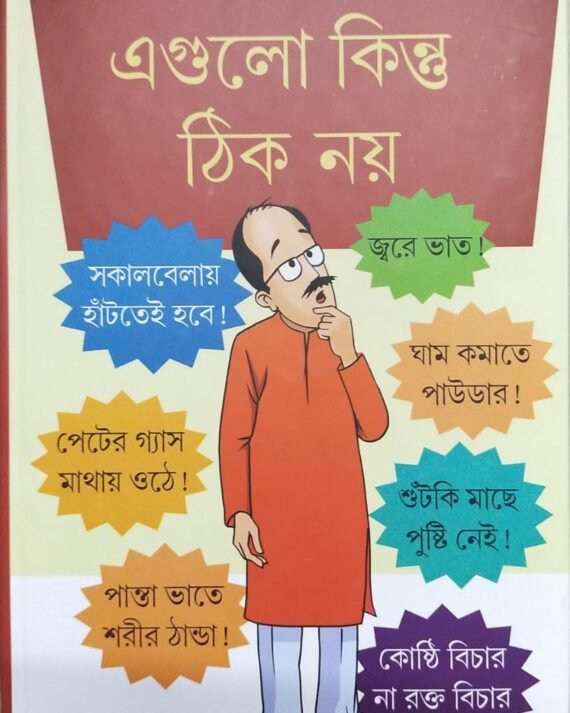 এগুলো কিন্তু
ঠিক নয়
সকালবেলায়
হাঁটতেই হবে!
জ্বরে ভাত!
ঘাম কমাতে
পাউডার!
পেটের গ্যাস
মাথায় ওঠে!
শুঁটকি মাছে
পুষ্টি নেই!
পান্তা ভাতে
শরীর ঠান্ডা!
কোষ্ঠি বিচার
না রক্ত বিচার